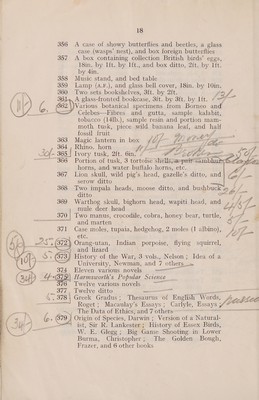 18
356 A case of showy butterflies and beetles, a glass
case (wasps' nest), and box foreign butterflies
357 A box containing collection British birds' eggs,
18in. by 1ft. by 1ft., and box ditto, 2ft. by 1ft.
by 4in.
358 Music stand, and bed table
359 Lamp (A.F.), and glass bell cover, 18in. by 10in.
360 Two sets bookshelves, 3ft. by 2ft.
361 A glass-fronted bookcase, 3ft. by 3ft. by 1ft.
362 Various botanical specimens from Borneo and
Celebes—Fibres and gutta, sample kadahit,
tobacco (14lb.), sample resin and portion mam-
moth tusk, piece wild banana leaf, and half
fossil fruit
363 Magic lantern in box
364 Rhino. horn
365 Ivory tusk, 2ft. 6in.
366 Portion of tusk, 3 tortoise shells, a pair sambhur
horns, and water buffalo horns, etc.
367 Lion skull, wild pig's head, gazelle's ditto, and
serow ditto
368 Two impala heads, moose ditto, and bushbuck
ditto
369 Warthog skull, bighorn head, wapiti head, and
male deer head
370 Two manus, crocodile, cobra, honey bear, turtle,
and marten
371 Case moles, tupaia, hedgehog, 2 moles (1 albino),
etc.
372 Orang-utan, Indian porpoise, flying squirrel,
and lizard
373 History of the War, 3 vols., Nelson; Idea of a
University, Newman, and 7 others
374 Eleven various novels
375 Harmsworth's Popular Science
376 Twelve various novels
377 Twelve ditto
378 Greek Gradus; Thesaurus of English Words,
Roget; Macaulay's Essays; Carlyle, Essays;
The Data of Ethics; and 7 others
379 Origin of Species, Darwin; Version of a Natural-
ist, Sir R. Lankester; History of Essex Birds,
W. E. Glegg; Big Game Shooting in Lower
Burma, Christopher; The Golden Bough,
Frazer, and 6 other books